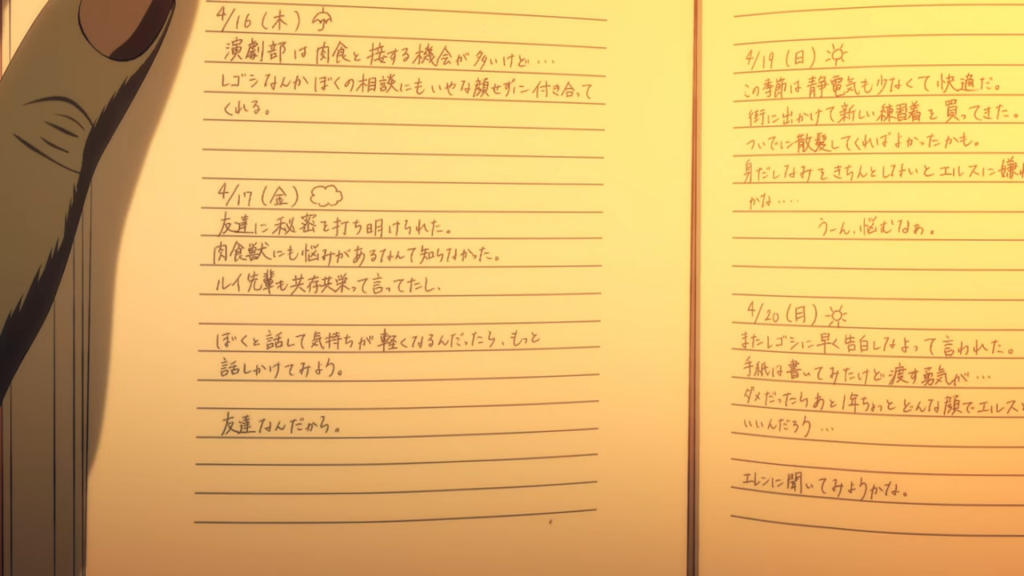 4/16(木)
演劇部は肉食と接する機会が多いけど…
レゴシなんかぼくの相談にもいやな顔せずに付き合って
くれる。
4/17(金)
友達に秘密を打ち明けられた。
肉食獣にも悩みがあるなんて知らなかった。
ルイ先輩も共存共栄って言ってたし、
ぼくと話して気持ちが軽くなるんだったら、もっと
話しかけてみよう。
友達なんだから。
4/19(日)
この季節は静電気も少なくて快適だ。
街に出かけて新しい練習着を買ってきた。
ついでに散髪してくればよかったかも。
身だしなみをきちんとしないとエルスに嫌
かな‥‥
うーん、悩むなぁ。
4/20(月)
またレゴシに早く告白しなよって言われた。
手紙は書いてみたけど渡す勇気が…
ダメだったらあと1年ちょっとどんな顔でエルスと
いいんだろう…
エレンに聞いてみようかな。